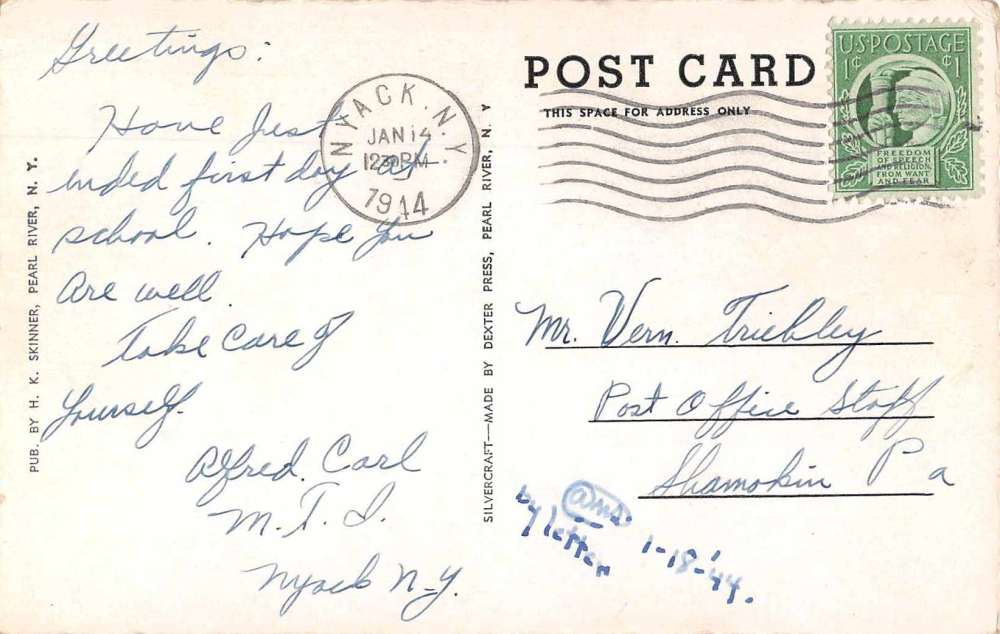 Greetings:
Have Just
ended first day at
school. Hope You
Are well.
Take Care of
Yourself.
Alfred. Carl
M. T. I.
Nyack N-Y.
PUB. BY H. K. SKINNER, PEARL RIVER, N. Y.
SILVERCRAFT—MADE BY DEXTER PRESS, PEARL RIVER, N. Y
NYACK. N.Y.
JAN 14
12 30 PM
1944
POST CARD
THIS SPACE FOR ADDRESS ONLY
U.S. POSTAGE
1¢ ¢1
FREEDOM
OF SPEECH
AND RELIGION,
FROM WANT
AND FEAR
Mr. Vern. Triebley
Post Office Staff
Shamokin Pa
Ans.
by letter
1-18-'44.